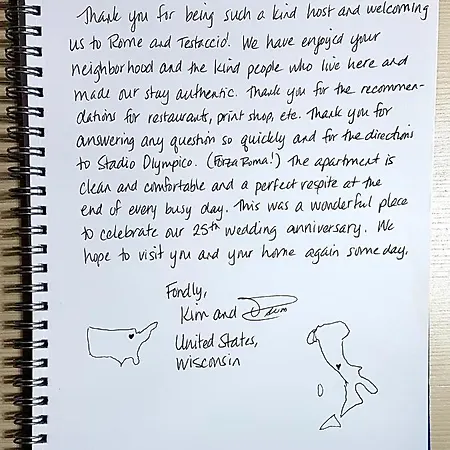 Thank you for being such a kind host and welcoming
us to Rome and Testaccio. We have enjoyed your
neighborhood and the kind people who live here and
made our stay authentic. Thank you for the recommen-
dations for restaurants, print shop, etc. Thank you for
answering any question so quickly and for the directions
to Stadio Olympico. (Forza Roma!) The apartment is
clean and comfortable and a perfect respite at the
end of every busy day. This was a wonderful place
to celebrate our 25th wedding anniversary. We
hope to visit you and your home again someday.
Fondly,
Kim and
United States,
Wisconsin